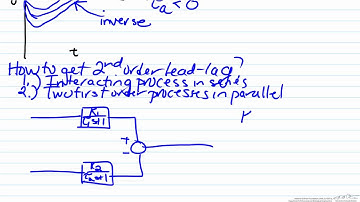 τa < 0
inverse
t
How to get 2nd order lead-lag?
1.) Interacting process in series
2.) Two first order processes in parallel
K1
τ1s+1
+
-
K2
τ2s+1